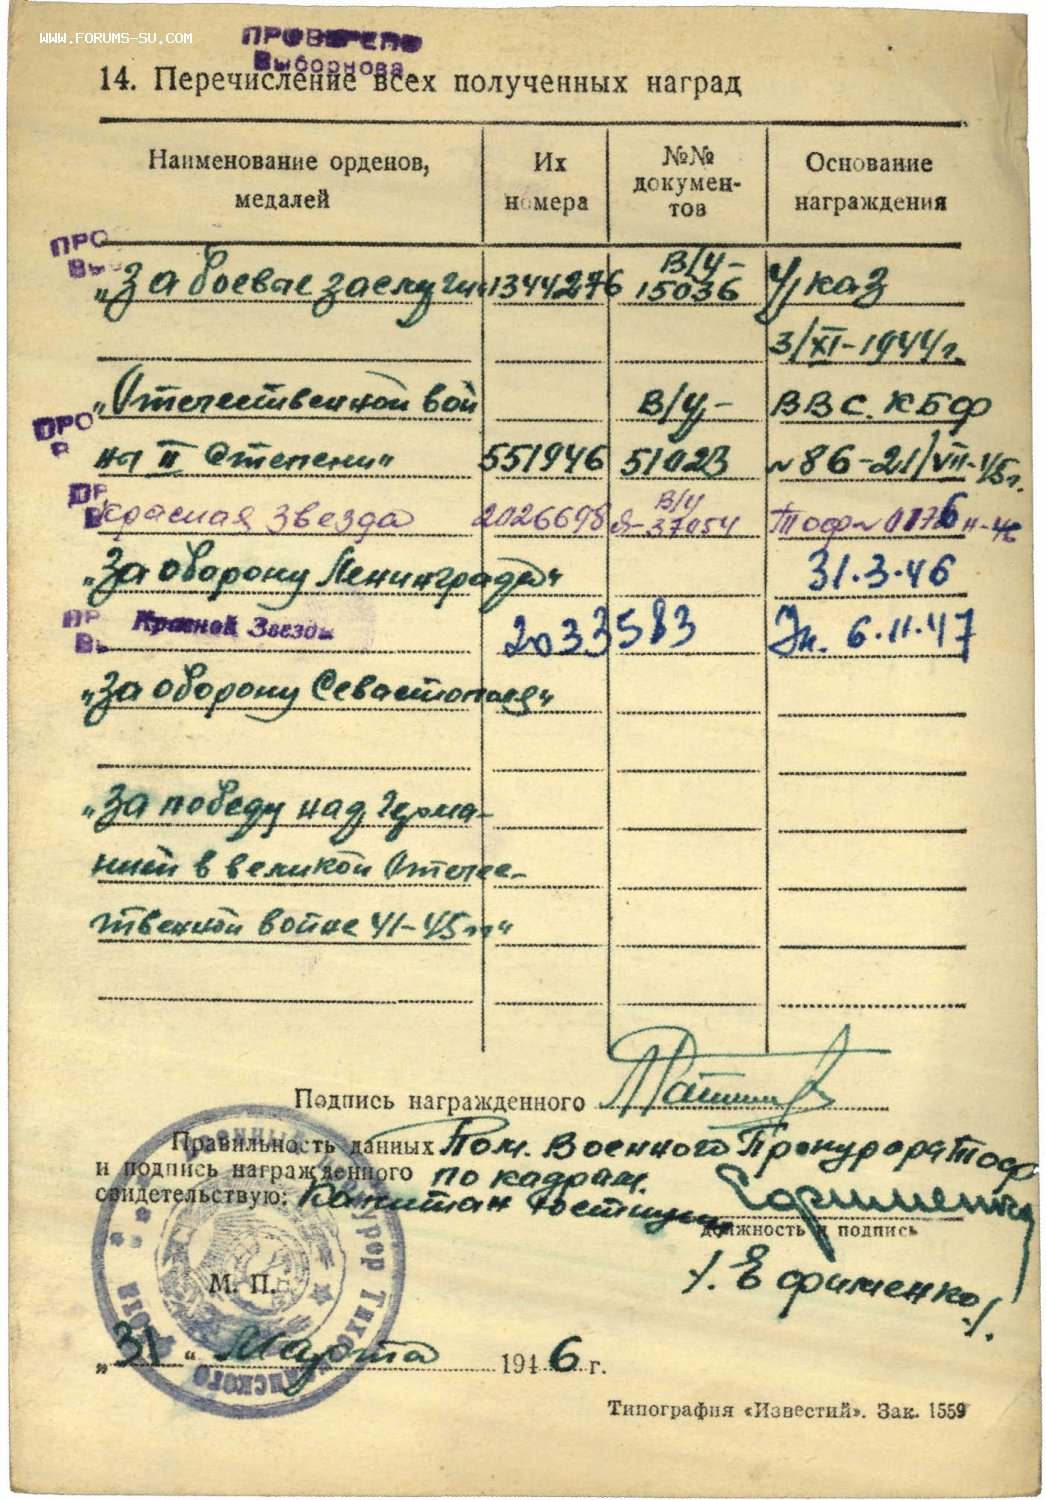 WWW.FORUMS-SU.COM
ПРОВЕРЕНО
Выборнова
14. Перечисление всех полученных наград
Наименование орденов, медалей
Их номера
№№ документов
Основание награждения
ПРО
Вы
„За боевые заслуги“ 1344276 В/У- 15036 Указ
3/XI-1944г.
„Отечественной вой В/У- ВВС. КБФ
ПРО
В
ны II Степени“ 551946 51023 №86-21/VII-45г.
ПР
В
Красная звезда 2026698 В/У Я-37054 Тоф № 0176
„За оборону Ленинграда“ 31.3.46
ПР
Вы
Красной Звезды 2033583 Зн. 6.11.47
„За оборону Севастополя“
„За победу над Герма-
нией в великой Отече-
ственной войне 41-45гг“
Подпись награжденного
Правильность данных Пом. Военного Прокурора Тоф
и подпись награжденного по кадрам.
свидетельствую: Капитан Юстиции Ефименко
должность и подпись
/. Ефименко./.
М. П.
Прокурор Тихоокеанского флота
„31“ Марта 1946 г.
Типография «Известий». Зак. 1559